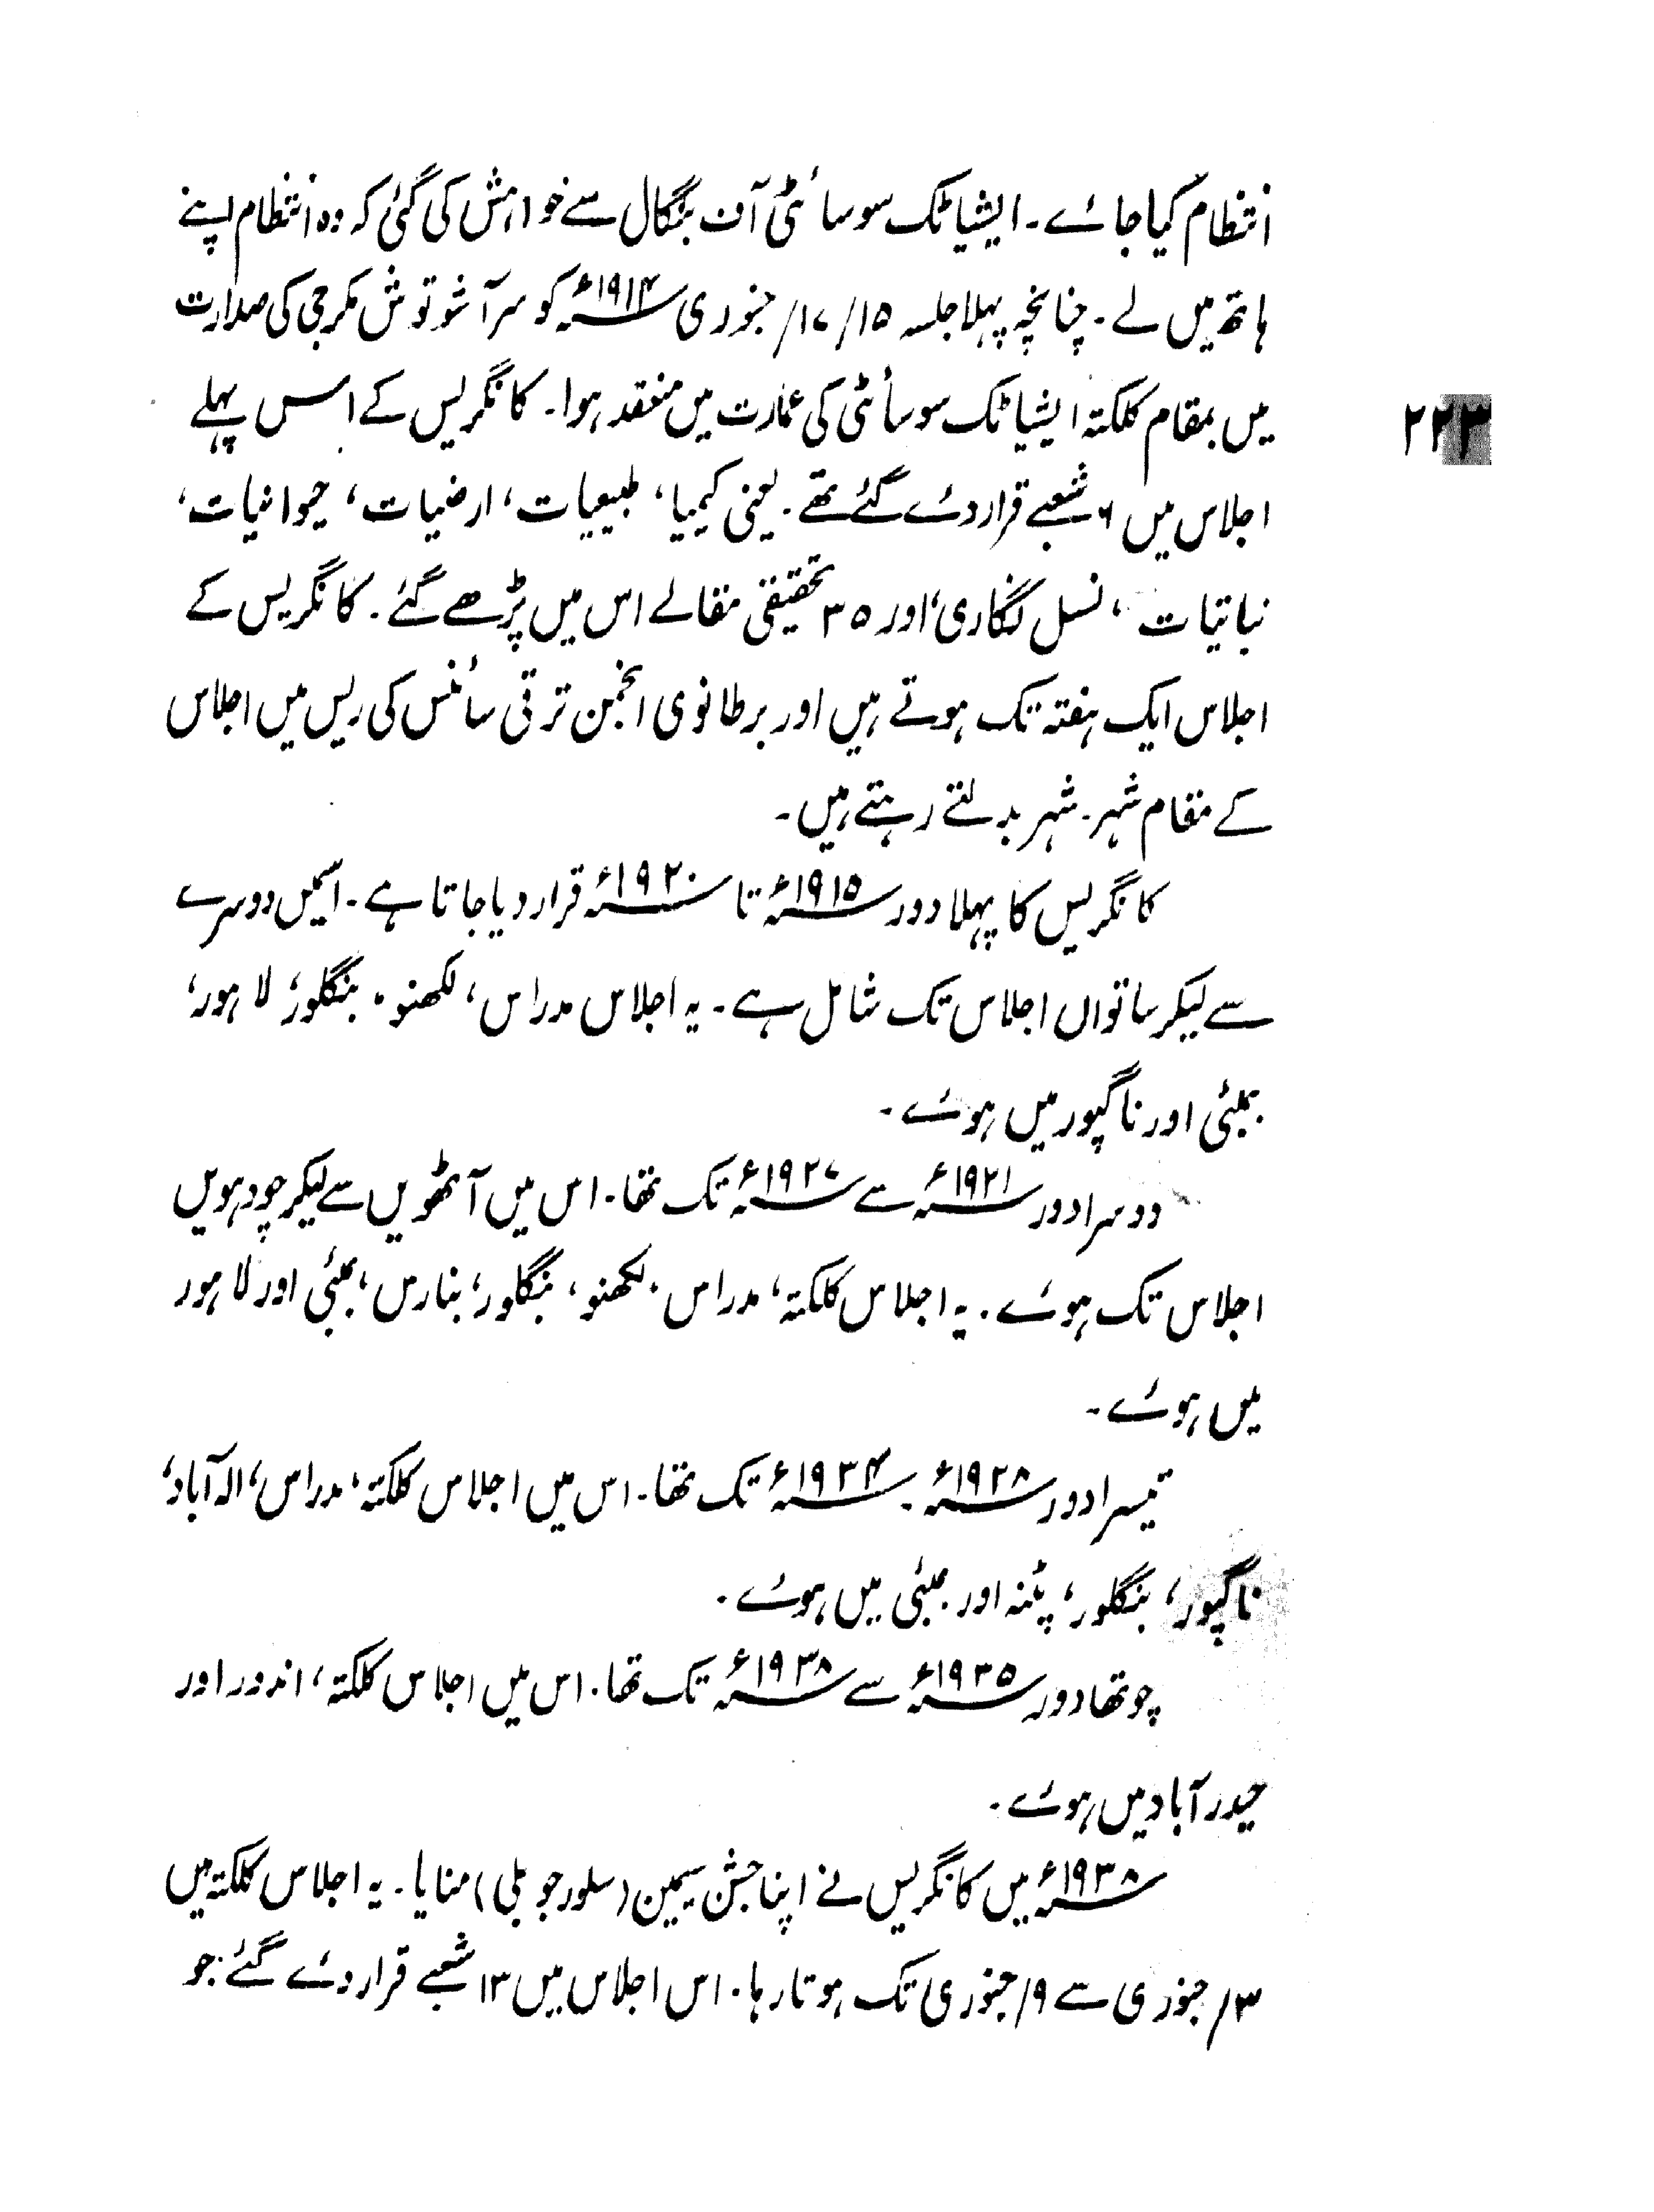 انتظام کیا جائے۔ ایشیاٹک سوسائٹی آف بنگال سے خواہش کی گئی کہ وہ انتظام اپنے
ہاتھ میں لے۔ چنانچہ پہلا جلسہ ۱۵/ ۱۷/ جنوری ۱۹۱۴ء کو سر آشوتوش مکرجی کی صدارت
میں بمقام کلکتہ ایشیاٹک سوسائٹی کی عمارت میں منعقد ہوا۔ کانگریس کے اس پہلے
۲۲۳
اجلاس میں ۶ شعبے قرار دئے گئے تھے۔ یعنی کیمیا، طبیعیات، ارضیات، حیوانیات،
نباتیات، نسل نگاری، اور ۳۵ تحقیقی مقالے اس میں پڑھے گئے۔ کانگریس کے
اجلاس ایک ہفتہ تک ہوتے ہیں اور برطانوی انجمن ترقی سائنس کی ریس میں اجلاس
کے مقام شہر۔ شہر بدلتے رہتے ہیں۔
کانگریس کا پہلا دور ۱۹۱۵ء تا ۱۹۲۰ء قرار دیا جاتا ہے۔ اسمیں دوسرے
سے لیکر ساتواں اجلاس تک شامل ہے۔ یہ اجلاس مدراس، لکھنو، بنگلور، لاہور،
بمبئی اور ناگپور میں ہوئے۔
دوسرا دور ۱۹۲۱ء سے ۱۹۲۷ء تک تھا۔ اس میں آٹھویں سے لیکر چودہویں
اجلاس تک ہوئے۔ یہ اجلاس کلکتہ، مدراس، لکھنو، بنگلور، بنارس، بمبئی اور لاہور
میں ہوئے۔
تیسرا دور ۱۹۲۸ء۔ ۱۹۳۴ء تک تھا۔ اس میں اجلاس کلکتہ، مدراس، الہ آباد،
ناگپور، بنگلور، پٹنہ اور بمبئی میں ہوئے۔
چوتھا دور ۱۹۳۵ء سے ۱۹۳۸ء تک تھا۔ اس میں اجلاس کلکتہ، اندور اور
حیدرآباد میں ہوئے۔
۱۹۳۸ء میں کانگریس نے اپنا جشن سیمین (سلور جوبلی) منایا۔ یہ اجلاس کلکتہ میں
۳/ جنوری سے ۹/ جنوری تک ہوتا رہا۔ اس اجلاس میں ۱۳ شعبے قرار دئے گئے جو